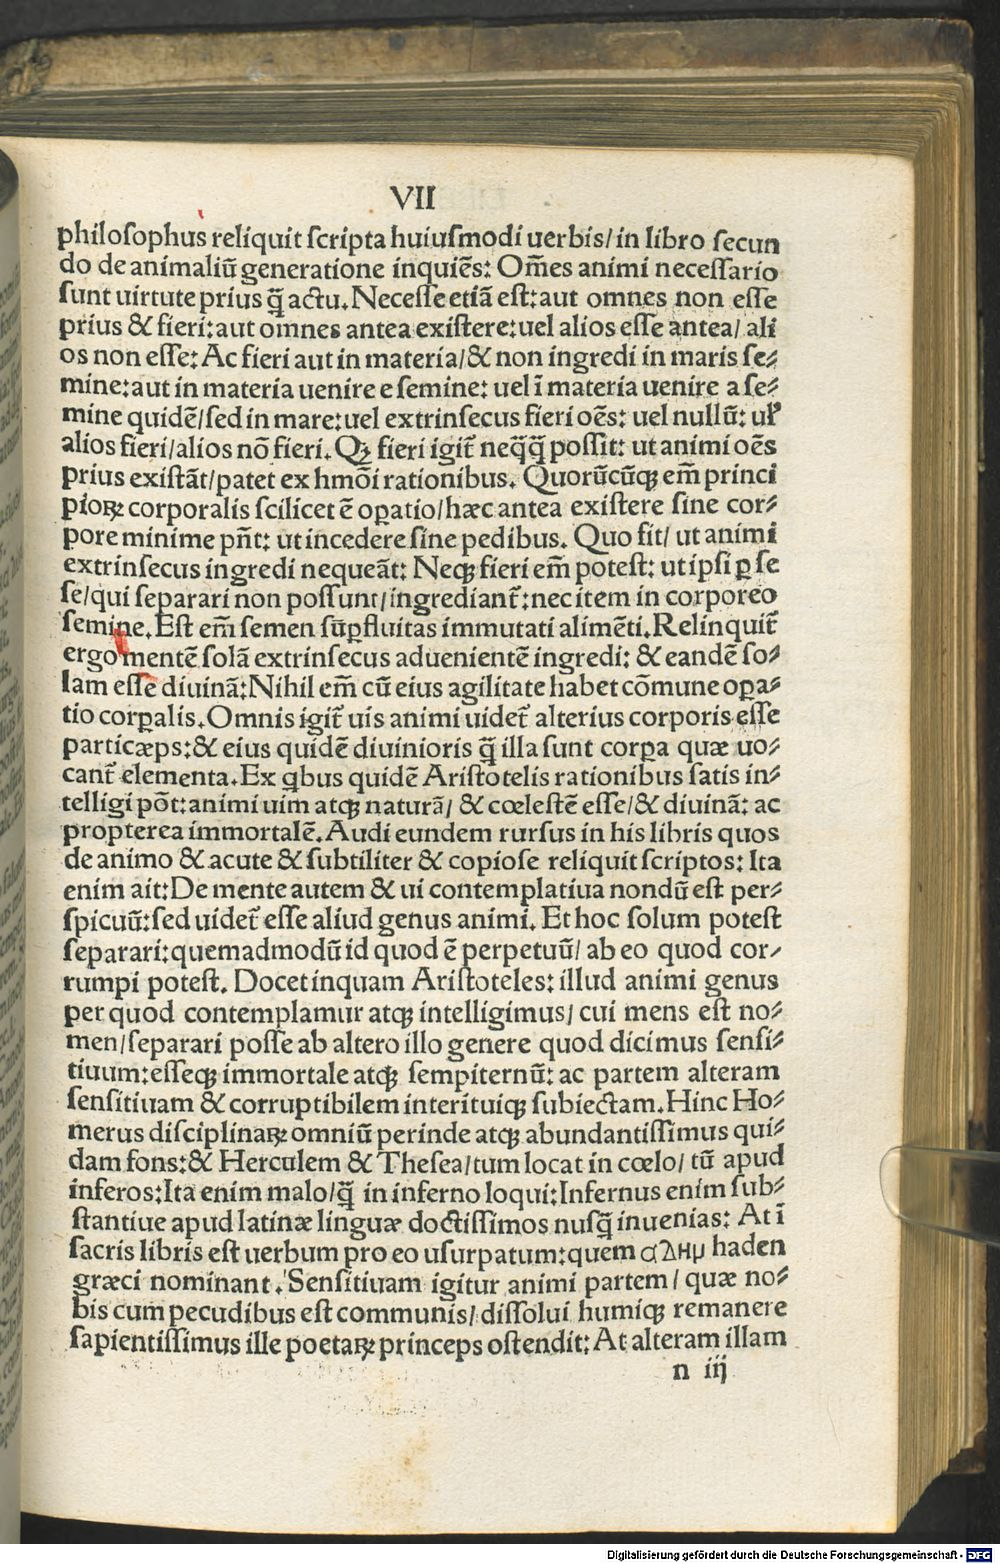 VII
philosophus reliquit scripta huiusmodi uerbis/in libro secun
do de animaliū generatione inquiēs: Om̄es animi necessario
sunt uirtute prius q̄ actu. Necesse etiā est: aut omnes non esse
prius & fieri: aut omnes antea existere: uel alios esse antea/ ali
os non esse: Ac fieri aut in materia/& non ingredi in maris se⸗
mine: aut in materia uenire e semine: uel ī materia uenire a se⸗
mine quidē/sed in mare: uel extrinsecus fieri oēs: uel nullū: uł
alios fieri/alios nō fieri. Qꝫ fieri igit̄ neq̄q̄ possit: ut animi oēs
prius existāt/patet ex hmōi rationibus. Quorūcūqꝫ em̄ princi
pioꝝ corporalis scilicet ē oꝑatio/hæc antea existere sine cor⸗
pore minime pn̄t: ut incedere sine pedibus. Quo fit/ ut animi
extrinsecus ingredi nequeāt: Neqꝫ fieri em̄ potest: ut ipsi ꝑ se
se/qui separari non possunt/ingrediant̄: nec item in corporeo
semine. Est em̄ semen sūꝑfluitas immutati alimēti. Relinquit̄
ergo mentē solā extrinsecus aduenientē ingredi: & eandē so⸗
lam esse diuinā: Nihil em̄ cū eius agilitate habet cōmune oꝑa⸗
tio corꝑalis. Omnis igit̄ uis animi uidet̄ alterius corporis esse
particæps: & eius quidē diuinioris q̄ illa sunt corꝑa quæ uo⸗
cant̄ elementa. Ex qbus quidē Aristotelis rationibus satis in⸗
telligi pōt: animi uim atqꝫ naturā/ & cœlestē esse/& diuinā: ac
propterea immortalē. Audi eundem rursus in his libris quos
de animo & acute & subtiliter & copiose reliquit scriptos: Ita
enim ait: De mente autem & ui contemplatiua nondū est per⸗
spicuū: sed uidet̄ esse aliud genus animi. Et hoc solum potest
separari: quemadmodū id quod ē perpetuū/ ab eo quod cor⸗
rumpi potest. Docet inquam Aristoteles: illud animi genus
per quod contemplamur atqꝫ intelligimus/ cui mens est no⸗
men/separari posse ab altero illo genere quod dicimus sensi⸗
tiuum: esseqꝫ immortale atqꝫ sempiternū: ac partem alteram
sensitiuam & corruptibilem interituiqꝫ subiectam. Hinc Ho⸗
merus disciplinaꝝ omniū perinde atqꝫ abundantissimus qui⸗
dam fons: & Herculem & Thesea/tum locat in cœlo/ tū apud
inferos: Ita enim malo/q̄ in inferno loqui: Infernus enim sub⸗
stantiue apud latinæ linguæ doctissimos nusq̄ inuenias: At ī
sacris libris est uerbum pro eo usurpatum: quem αδημ haden
græci nominant. Sensitiuam igitur animi partem/ quæ no⸗
bis cum pecudibus est communis/ dissolui humiqꝫ remanere
sapientissimus ille poetaꝝ princeps ostendit: At alteram illam
n iij
Digitalisierung gefördert durch die Deutsche Forschungsgemeinschaft - DFG